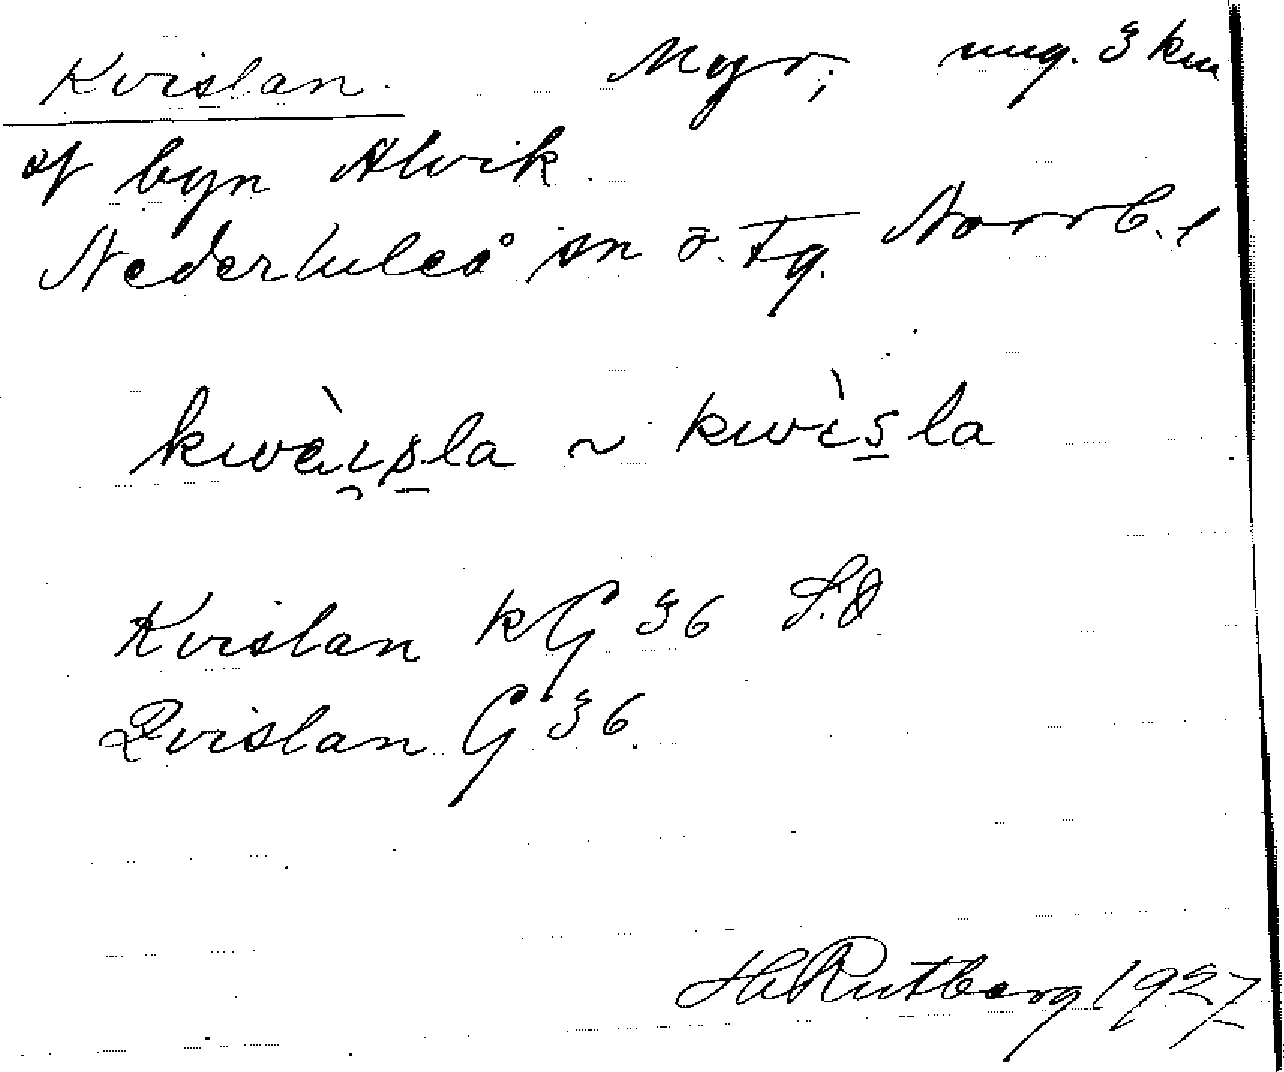 Kvislan. Myr, ung. 3 km
af byn Alvik.
Nederluleå sn ö. Tg. Norrb. l
kwàiṣla ~ kwìṣla
Kvislan kG 36 S.O
Qvislan G 36.
H Rutberg 1927